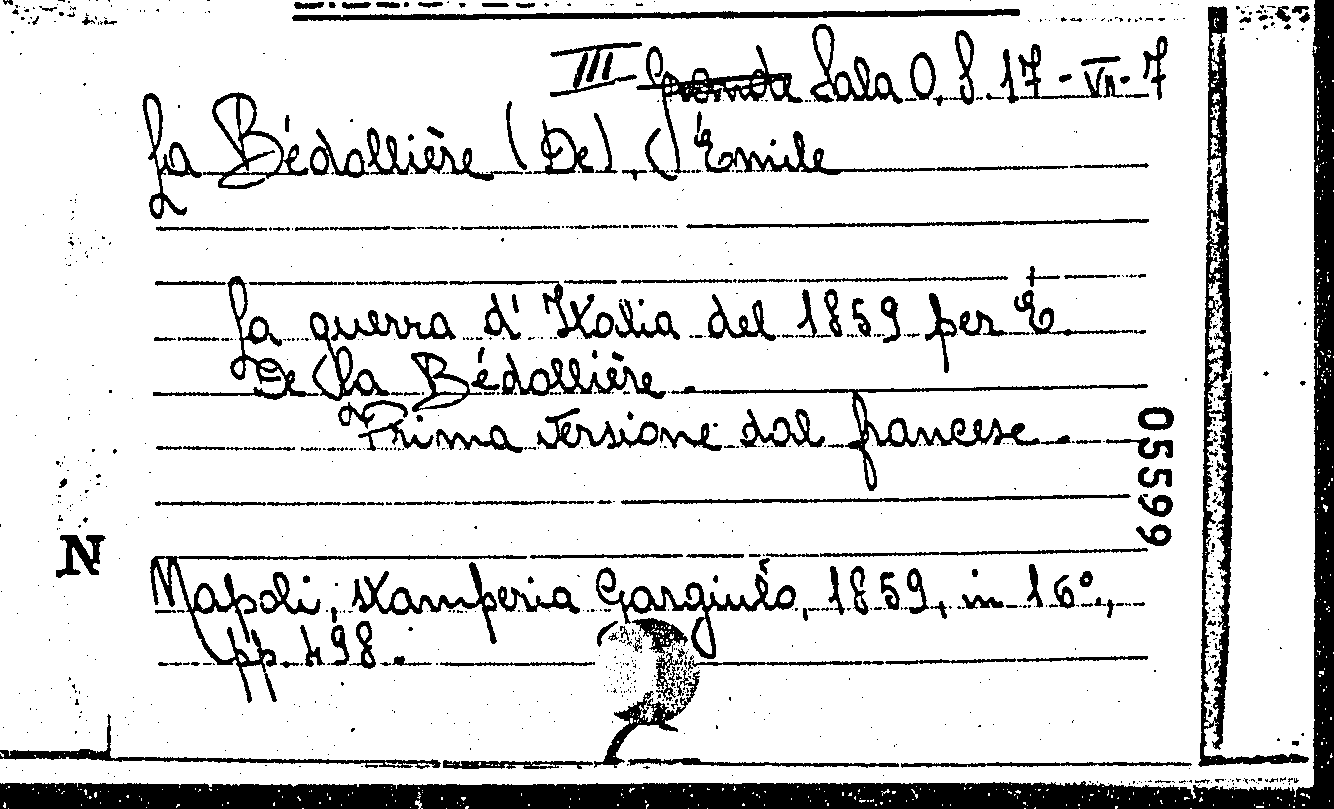 III Grande Sala O. S. 17-VII-7
La Bédollière (De), Émile
La guerra d'Italia del 1859 per É.
De La Bédollière.
Prima versione dal francese.
05599
N
Napoli, stamperia Gargiulo, 1859, in 16°,
pp. 498.